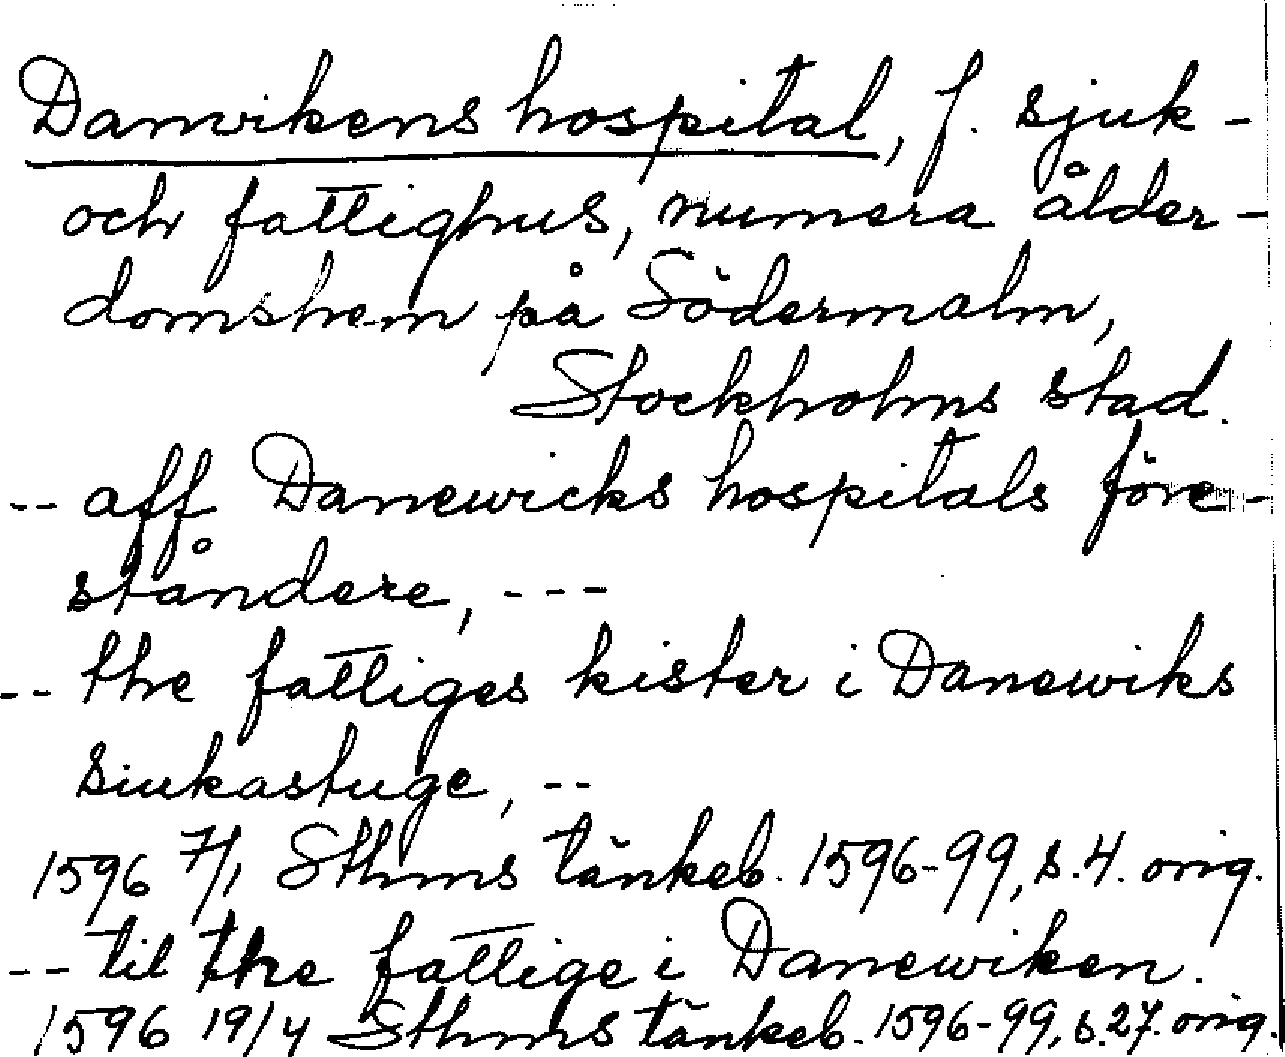 Danvikens hospital, f. sjuk-
och fattighus, numera ålder-
domshem på Södermalm,
Stockholms stad.
-- aff Danewicks hospitals före-
ståndere, ---
-- the fattiges kister i Danewiks
siukastuge, --
1596 7/1 Sthms tänkeb. 1596-99, s.4. orig.
-- til the fattige i Danewiken.
1596 19/4 Sthms tänkeb. 1596-99, s.27. orig.